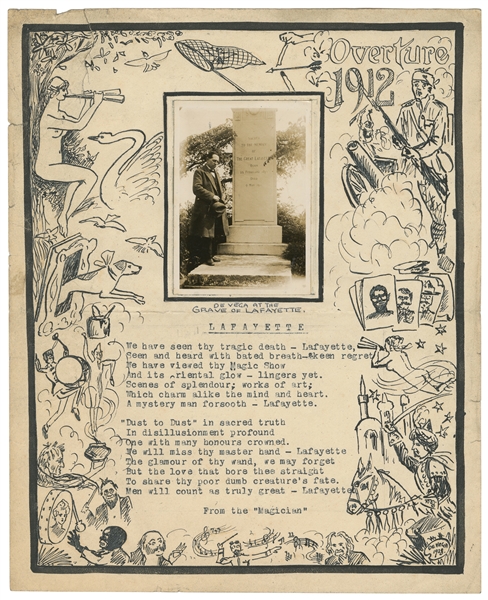 Overture
1912
TO THE MEMORY
OF
THE GREAT LAFAYETTE
DE VEGA AT THE
GRAVE OF LAFAYETTE.
LAFAYETTE
We have seen thy tragic death - Lafayette,
Seen and heard with bated breath-&keem regret
We have viewed thy Magic Show
And its Ariental glow - lingers yet.
Scenes of splendour; works of art;
Which charm alike the mind and heart.
A mystery man forsooth - Lafayette.
"Dust to Dust" in sacred truth
In disillusionment profound
One with many honours crowned.
We will miss thy master hand - Lafayette
The glamour of thy wand, we may forget
But the love that bore thee straight
To share thy poor dumb creature's fate.
Men will count as truly great - Lafayette
From the "Magician"
DE VEGA